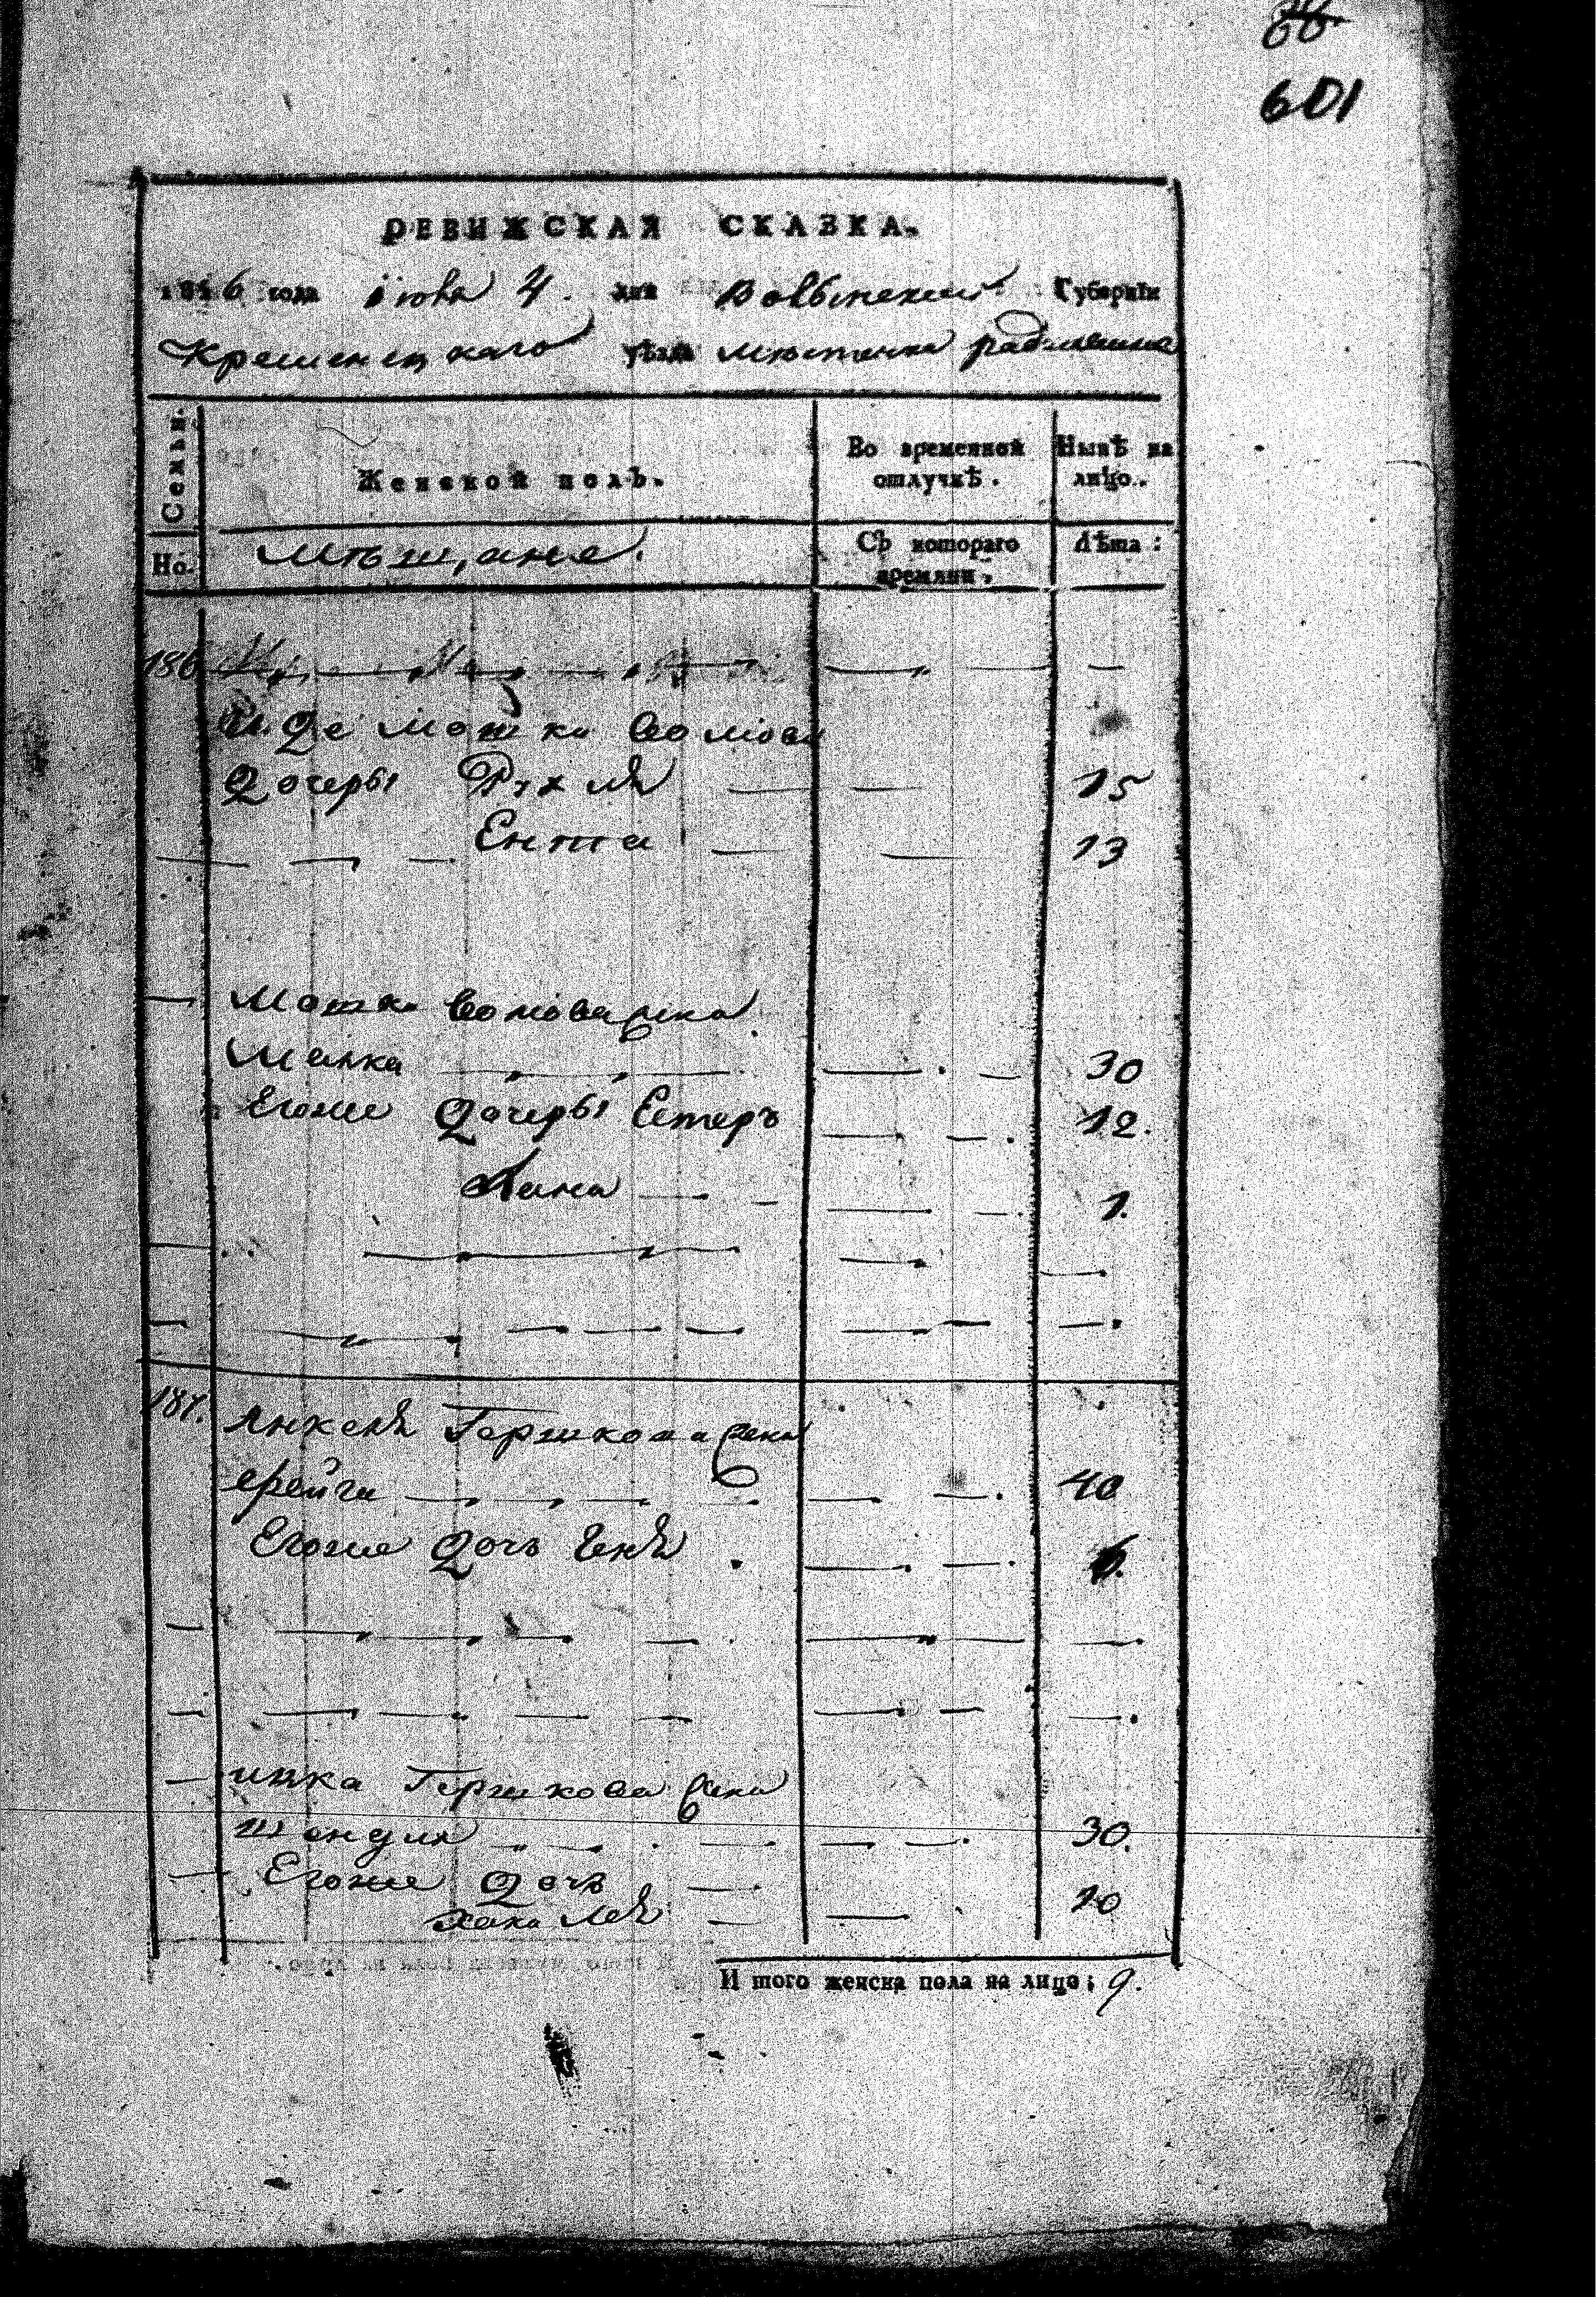 601
РЕВИЖСКАЯ СКАЗКА.
1816 года июня 4. дня Волынской Губерніи
Кременецкаго уѣзда мѣстечка радзивилова
Семьи.
Женской полъ.
Во временной отлучкѣ.
Нынѣ на лицо.
Но.
мѣщане.
Съ котораго времяни.
Лѣта:
186
Мошки
Дочеры Рухля 15
Ента 13
Мошки жена
Малка 30
Егоже дочеры Естеръ 12.
Хана 1.
187. Янкеля Гершкова жена
фрейга 40
Егоже дочь Геня
ицка Гершкова жена
шендля 30.
Егоже дочь
Хана Лея 10
И того женска пола на лицо: 9.